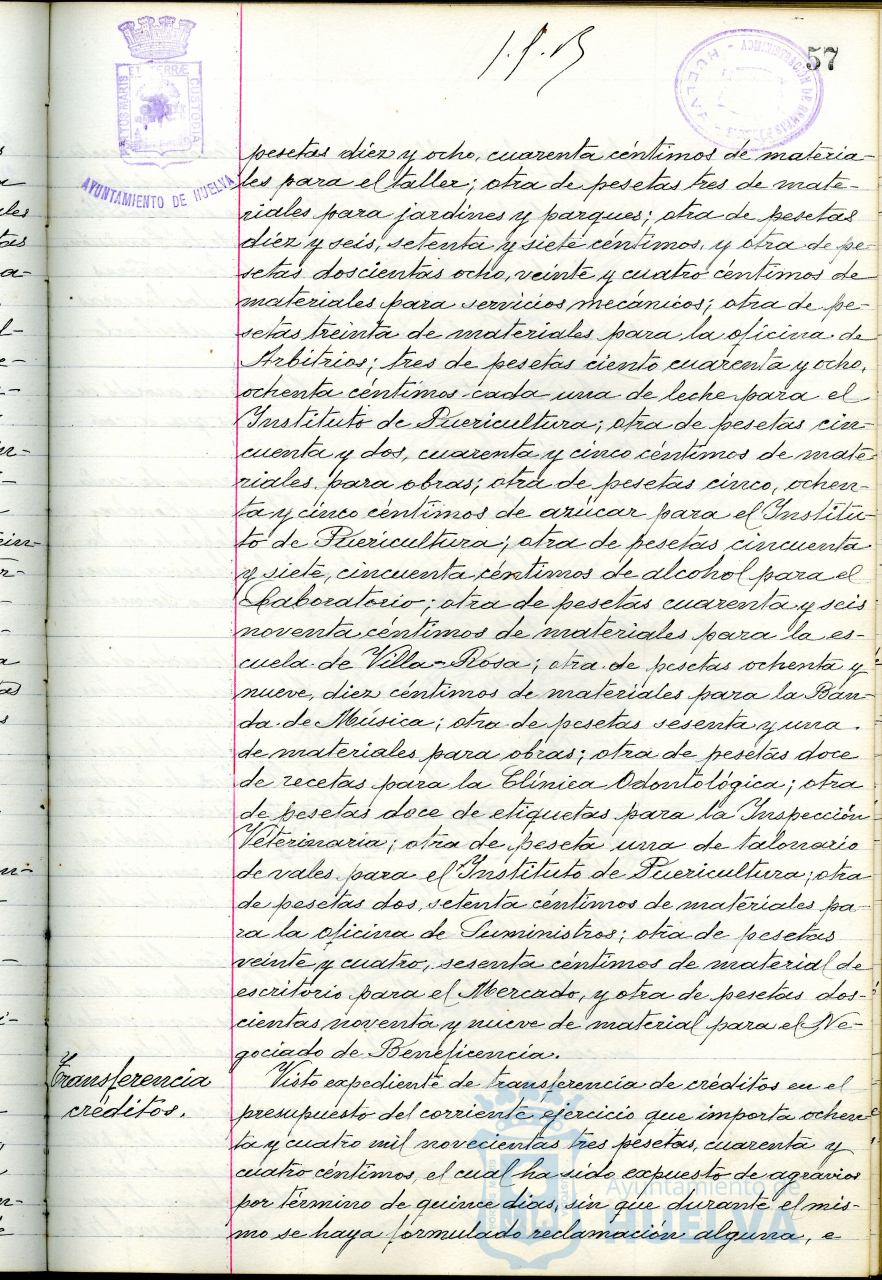 57
AYUNTAMIENTO DE HUELVA
pesetas diez y ocho, cuarenta céntimos de materia-
les para el taller; otra de pesetas tres de mate-
riales para jardines y parques; otra de pesetas
diez y seis, setenta y siete céntimos, y otra de pe-
setas doscientas ocho, veinte y cuatro céntimos de
materiales para servicios mecánicos; otra de pe-
setas treinta de materiales para la oficina de
Arbitrios; tres de pesetas ciento cuarenta y ocho,
ochenta céntimos cada una de leche para el
Instituto de Puericultura; otra de pesetas cin-
cuenta y dos, cuarenta y cinco céntimos de mate-
riales para obras; otra de pesetas cinco, ochen-
ta y cinco céntimos de azúcar para el Institu-
to de Puericultura; otra de pesetas cincuenta
y siete, cincuenta céntimos de alcohol para el
Laboratorio; otra de pesetas cuarenta y seis
noventa céntimos de materiales para la es-
cuela de Villa-Rosa; otra de pesetas ochenta y
nueve, diez céntimos de materiales para la Ban-
da de Música; otra de pesetas sesenta y una
de materiales para obras; otra de pesetas doce
de recetas para la Clínica Odontológica; otra
de pesetas doce de etiquetas para la Inspección
Veterinaria; otra de peseta una de talonario
de vales para el Instituto de Puericultura; otra
de pesetas dos, setenta céntimos de materiales pa-
ra la oficina de Suministros; otra de pesetas
veinte y cuatro, sesenta céntimos de material de
escritorio para el Mercado, y otra de pesetas dos-
cientas noventa y nueve de material para el Ne-
gociado de Beneficencia.
Transferencia
créditos.
Visto expediente de transferencia de créditos en el
presupuesto del corriente ejercicio que importa ochen-
ta y cuatro mil novecientas tres pesetas, cuarenta y
cuatro céntimos, el cual ha sido expuesto de agravios
por término de quince días, sin que durante el mis-
mo se haya formulado reclamación alguna, e
Ayuntamiento de
HUELVA